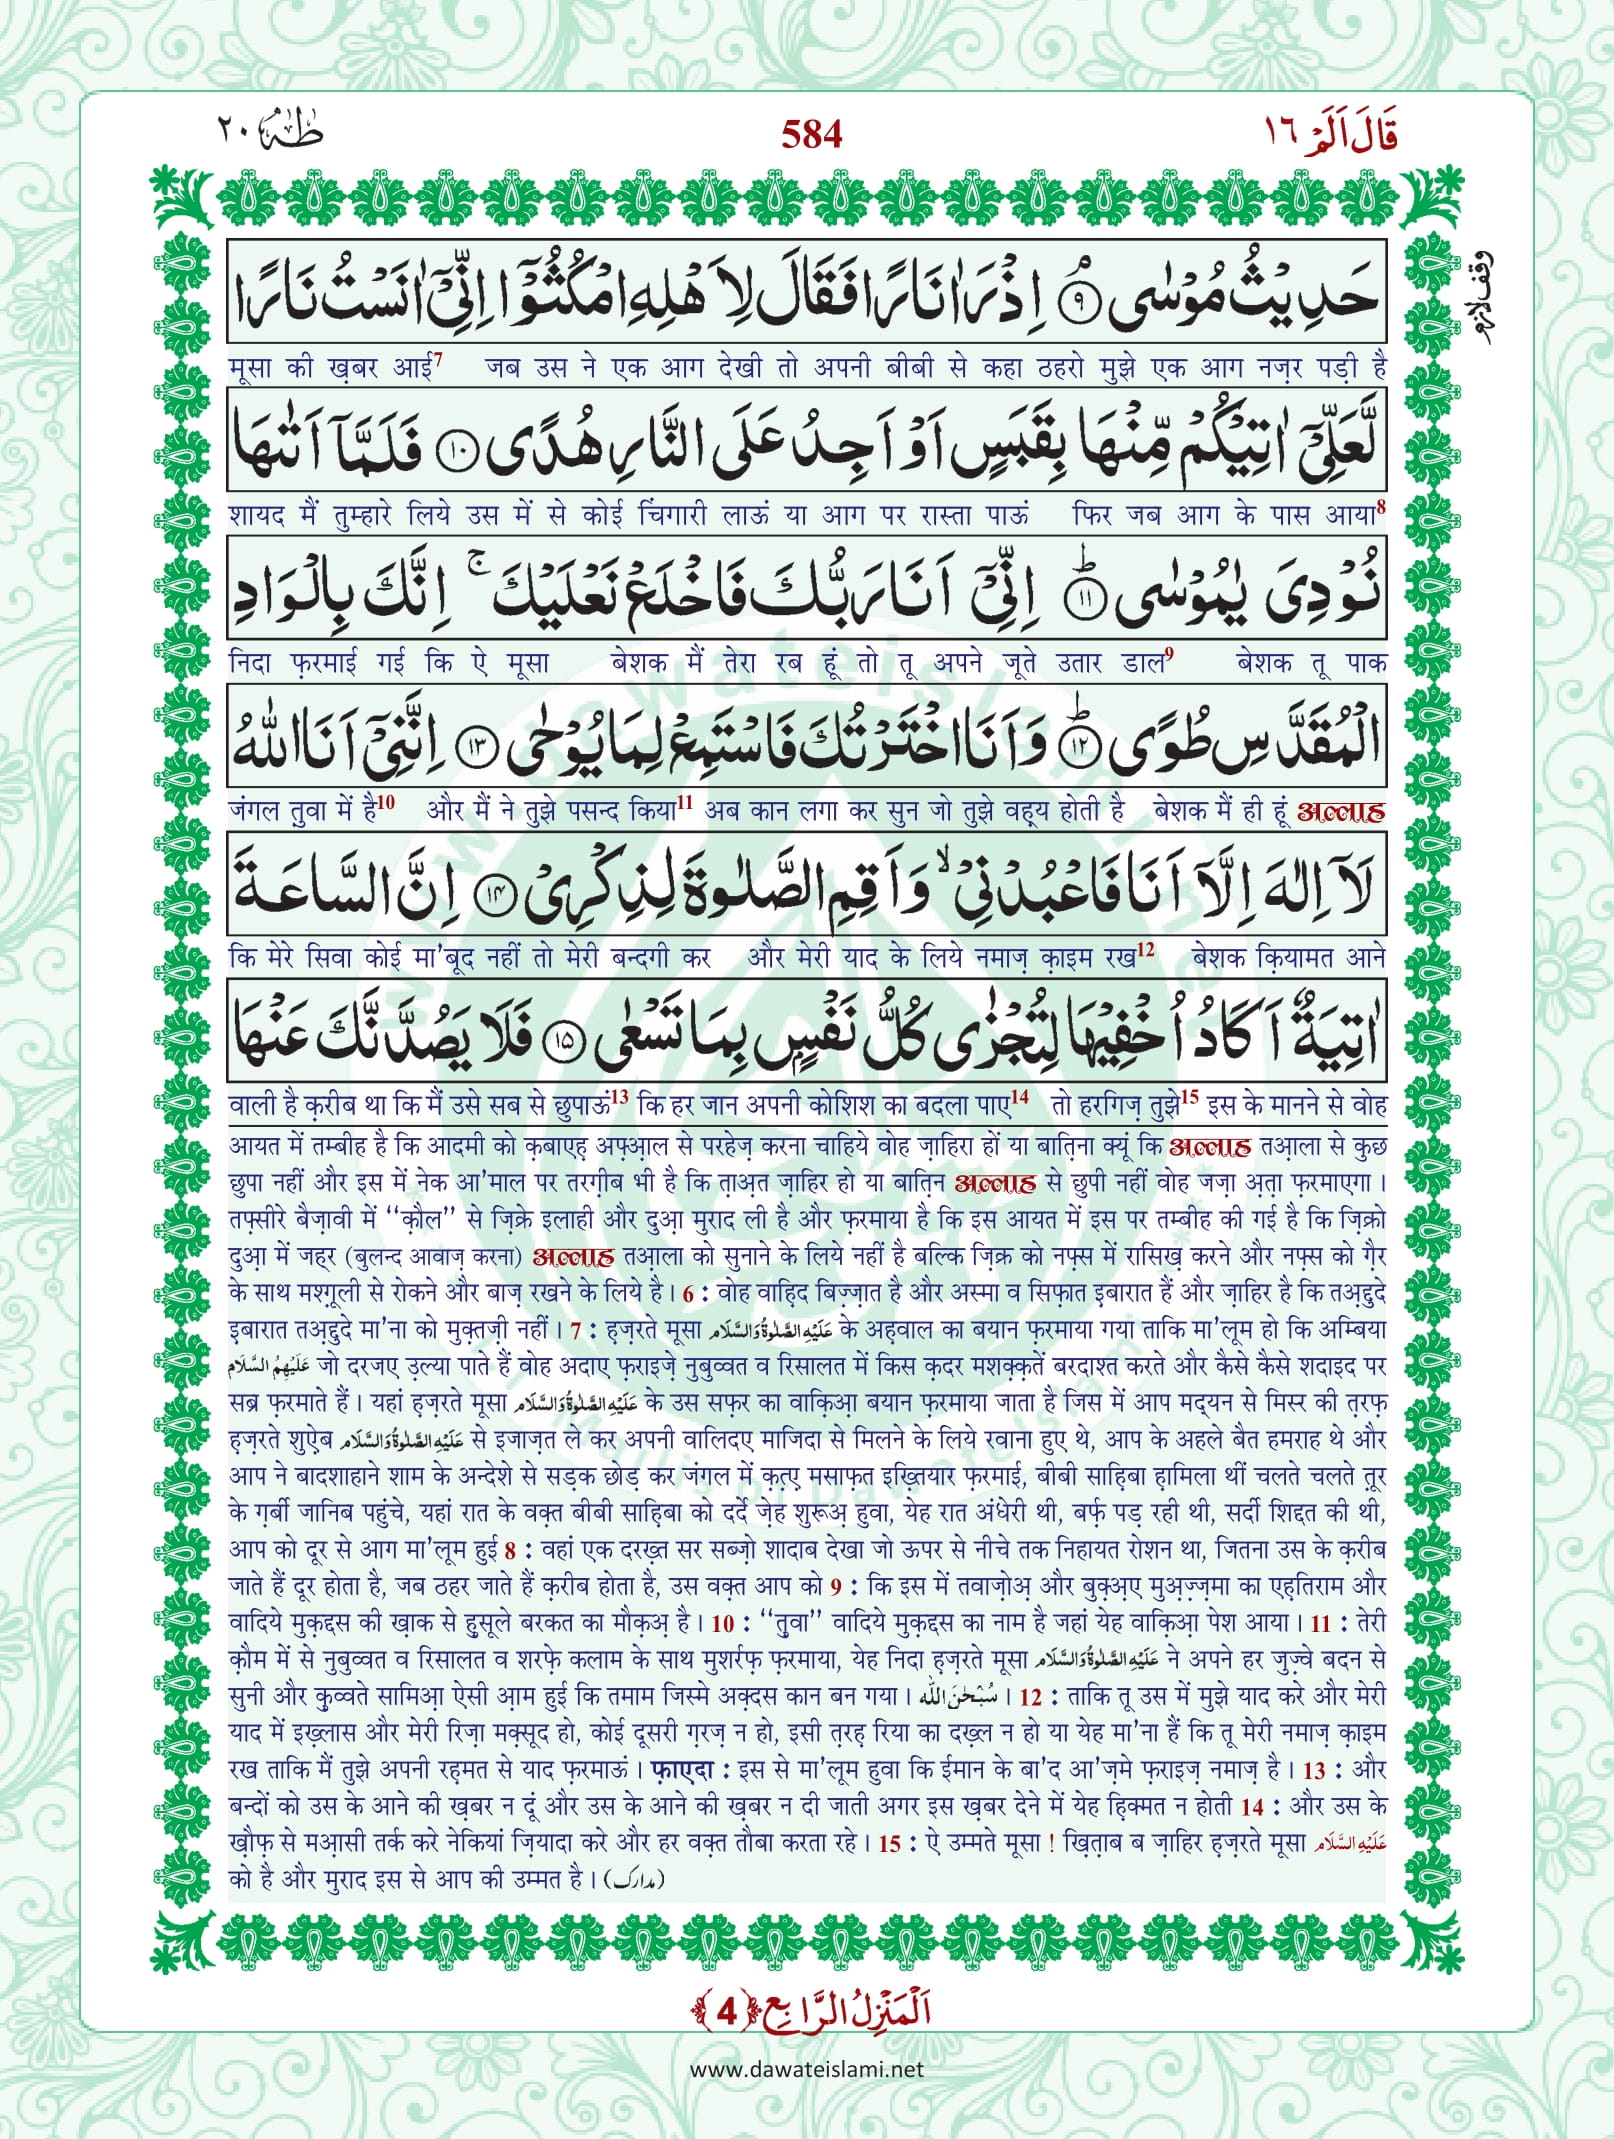 طٰهٰ ٢٠
584
قَالَ اَلَمْ ١٦
وقف لازم
حَدِیْثُ مُوْسٰی ۘ﴿۹﴾ اِذْ رَاٰ نَارًا فَقَالَ لِاَهْلِهِ امْكُثُوْۤا اِنِّیْۤ اٰنَسْتُ نَارًا
मूसा की ख़बर आई7 जब उस ने एक आग देखी तो अपनी बीबी से कहा ठहरो मुझे एक आग नज़र पड़ी है
لَّعَلِّیْۤ اٰتِیْكُمْ مِّنْهَا بِقَبَسٍ اَوْ اَجِدُ عَلَی النَّارِ هُدًی ﴿۱۰﴾ فَلَمَّاۤ اَتٰىهَا
शायद मैं तुम्हारे लिये उस में से कोई चिंगारी लाऊं या आग पर रास्ता पाऊं फिर जब आग के पास आया8
نُوْدِیَ یٰمُوْسٰی ؕ﴿۱۱﴾ اِنِّیْۤ اَنَا رَبُّكَ فَاخْلَعْ نَعْلَیْكَ ۚ اِنَّكَ بِالْوَادِ
निदा फ़रमाई गई कि ऐ मूसा बेशक मैं तेरा रब हूं तो तू अपने जूते उतार डाल9 बेशक तू पाक
الْمُقَدَّسِ طُوًی ؕ﴿۱۲﴾ وَ اَنَا اخْتَرْتُكَ فَاسْتَمِعْ لِمَا یُوْحٰی ﴿۱۳﴾ اِنَّنِیْۤ اَنَا اللّٰهُ
जंगल तुवा में है10 और मैं ने तुझे पसन्द किया11 अब कान लगा कर सुन जो तुझे वह्य होती है बेशक मैं ही हूं अल्लाह
لَاۤ اِلٰهَ اِلَّاۤ اَنَا فَاعْبُدْنِیْ ۙ وَ اَقِمِ الصَّلٰوةَ لِذِكْرِیْ ﴿۱۴﴾ اِنَّ السَّاعَةَ
कि मेरे सिवा कोई मा'बूद नहीं तो मेरी बन्दगी कर और मेरी याद के लिये नमाज़ क़ाइम रख12 बेशक क़ियामत आने
اٰتِیَةٌ اَكَادُ اُخْفِیْهَا لِتُجْزٰی كُلُّ نَفْسٍۭ بِمَا تَسْعٰی ﴿۱۵﴾ فَلَا یَصُدَّنَّكَ عَنْهَا
वाली है क़रीब था कि मैं उसे सब से छुपाऊं13 कि हर जान अपनी कोशिश का बदला पाए14 तो हरगिज़ तुझे15 इस के मानने से वोह
आयत में तम्बीह है कि आदमी को क़बाएह़ अफ़्आ़ल से परहेज़ करना चाहिये वोह ज़ाहिरा हों या बातिना क्यूं कि अल्लाह तआ़ला से कुछ
छुपा नहीं और इस में नेक आ'माल पर तरग़ीब भी है कि त़ाअ़त ज़ाहिर हो या बातिन अल्लाह से छुपी नहीं वोह जज़ा अ़त़ा फ़रमाएगा ।
तफ़्सीरे बैज़ावी में "क़ौल" से ज़िक्रे इलाही और दुआ़ मुराद ली है और फ़रमाया है कि इस आयत में इस पर तम्बीह की गई है कि ज़िक्रो
दुआ़ में जह्र (बुलन्द आवाज़ करना) अल्लाह तआ़ला को सुनाने के लिये नहीं है बल्कि ज़िक्र को नफ़्स में रासिख़ करने और नफ़्स को ग़ैर
के साथ मश्ग़ूली से रोकने और बाज़ रखने के लिये है । 6 : वोह वाह़िद बिज़्ज़ात है और अस्मा व सिफ़ात इ़बारात हैं और ज़ाहिर है कि तअ़द्दुदे
इ़बारात तअ़द्दुदे मा'ना को मुक़्तज़ी नहीं । 7 : ह़ज़रते मूसा عَلَیْهِ الصَّلٰوةُ وَالسَّلَام के अह़वाल का बयान फ़रमाया गया ताकि मा'लूम हो कि अम्बिया
عَلَیْهِمُ السَّلَام जो दरजए उ़ल्या पाते हैं वोह अदाए फ़राइज़े नुबुव्वत व रिसालत में किस क़दर मशक़्क़तें बरदाश्त करते और कैसे कैसे शदाइद पर
सब्र फ़रमाते हैं । यहां ह़ज़रते मूसा عَلَیْهِ الصَّلٰوةُ وَالسَّلَام के उस सफ़र का वाक़िआ़ बयान फ़रमाया जाता है जिस में आप मद्यन से मिस्र की त़रफ़
ह़ज़रते शुऐ़ब عَلَیْهِ الصَّلٰوةُ وَالسَّلَام से इजाज़त ले कर अपनी वालिदए माजिदा से मिलने के लिये रवाना हुए थे, आप के अहले बैत हमराह थे और
आप ने बादशाहाने शाम के अन्देशे से सड़क छोड़ कर जंगल में क़त़्ए़ मसाफ़त इख़्तियार फ़रमाई, बीबी साह़िबा ह़ामिला थीं चलते चलते त़ूर
के ग़र्बी जानिब पहुंचे, यहां रात के वक़्त बीबी साह़िबा को दर्दे ज़ेह शुरूअ़ हुवा, येह रात अंधेरी थी, बर्फ़ पड़ रही थी, सर्दी शिद्दत की थी,
आप को दूर से आग मा'लूम हुई 8 : वहां एक दरख़्त सर सब्ज़ो शादाब देखा जो ऊपर से नीचे तक निहायत रोशन था, जितना उस के क़रीब
जाते हैं दूर होता है, जब ठहर जाते हैं क़रीब होता है, उस वक़्त आप को 9 : कि इस में तवाज़ोअ़ और बुक़्अ़ए मुअ़ज़्ज़मा का एह़तिराम और
वादिये मुक़द्दस की ख़ाक से ह़ुसूले बरकत का मौक़अ़ है । 10 : "तुवा" वादिये मुक़द्दस का नाम है जहां येह वाक़िआ़ पेश आया । 11 : तेरी
क़ौम में से नुबुव्वत व रिसालत व शरफ़े कलाम के साथ मुशर्रफ़ फ़रमाया, येह निदा ह़ज़रते मूसा عَلَیْهِ الصَّلٰوةُ وَالسَّلَام ने अपने हर जुज़्वे बदन से
सुनी और क़ुव्वते सामिआ़ ऐसी आ़म हुई कि तमाम जिस्मे अक़्दस कान बन गया । سُبْحٰنَ اللّٰه । 12 : ताकि तू उस में मुझे याद करे और मेरी
याद में इख़्लास और मेरी रिज़ा मक़्सूद हो, कोई दूसरी ग़रज़ न हो, इसी त़रह़ रिया का दख़्ल न हो या येह मा'ना हैं कि तू मेरी नमाज़ क़ाइम
रख ताकि मैं तुझे अपनी रह़मत से याद फ़रमाऊं । फ़ाएदा : इस से मा'लूम हुवा कि ईमान के बा'द आ'ज़मे फ़राइज़ नमाज़ है । 13 : और
बन्दों को उस के आने की ख़बर न दूं और उस के आने की ख़बर न दी जाती अगर इस ख़बर देने में येह ह़िक्मत न होती 14 : और उस के
ख़ौफ़ से मआ़सी तर्क करे नेकियां ज़ियादा करे और हर वक़्त तौबा करता रहे । 15 : ऐ उम्मते मूसा ! ख़ित़ाब ब ज़ाहिर ह़ज़रते मूसा عَلَیْهِ السَّلَام
को है और मुराद इस से आप की उम्मत है । (مدارک)
اَلْمَنْزِلُ الرَّابِع ﴿4﴾
www.dawateislami.net